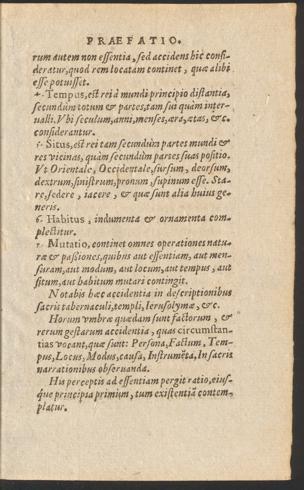 PRAEFATIO.
rum autem non essentia, sed accidens hic consi-
deratur, quod rem locatam continet, quæ alibi
esse potuisset.
4. Tempus, est rei à mundi principio distantia,
secundùm totum & partes, tam sui quàm inter-
ualli. Vbi seculum, anni, menses, æra, ætas, &c.
considerantur.
5. Situs, est rei tam secundùm partes mundi &
res vicinas, quàm secundùm partes suas positio.
Vt Orientale, Occidentale, sursum, deorsum,
dextrum, sinistrum, pronum, supinum esse. Sta-
re, sedere, iacere, & quæ sunt alia huius ge-
neris.
6. Habitus, indumenta & ornamenta com-
plectitur.
7. Mutatio, continet omnes operationes natu-
ræ & passiones, quibus aut essentiam, aut men-
suram, aut modum, aut locum, aut tempus, aut
situm, aut habitum mutari contingit.
Notabis hæc accidentia in descriptionibus
sacris tabernaculi, templi, Ierusolymæ, &c.
Horum vmbræ quædam sunt factorum, &
rerum gestarum accidentia, quas circumstan-
tias vocant, quæ sunt: Persona, Factum, Tem-
pus, Locus, Modus, causa, Instrumẽta, In sacris
narrationibus obseruanda.
His perceptis ad essentiam pergit ratio, eius-
q́ue principia primùm, tum existentiã contem-
platur.